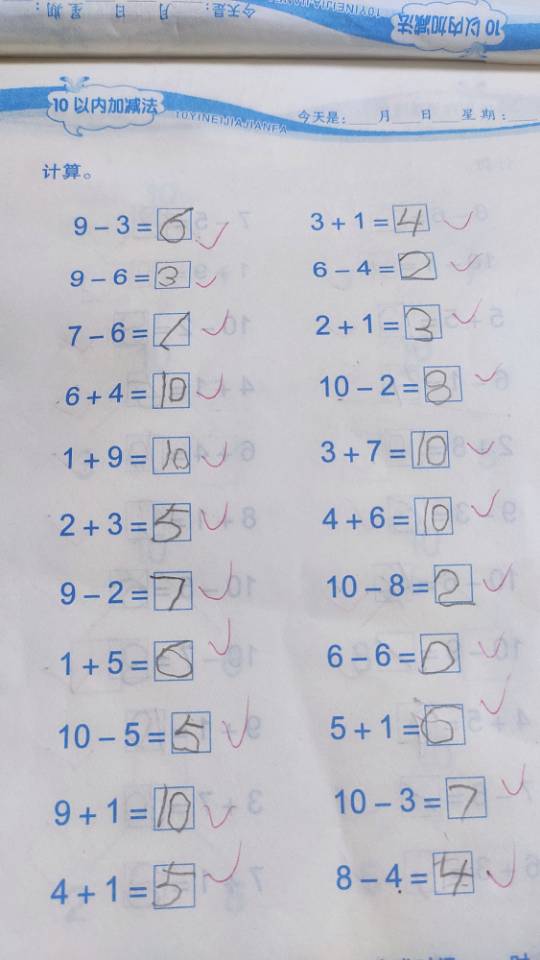 今天是: 月 日 星期:
10 以内加减法
10 以内加减法
10YINEIJIAJIANFA
今天是: 月 日 星期:
计算。
9 – 3 = 6
3 + 1 = 4
9 – 6 = 3
6 – 4 = 2
7 – 6 = 1
2 + 1 = 3
6 + 4 = 10
10 – 2 = 8
1 + 9 = 10
3 + 7 = 10
2 + 3 = 5
4 + 6 = 10
9 – 2 = 7
10 – 8 = 2
1 + 5 = 6
6 – 6 = 0
10 – 5 = 5
5 + 1 = 6
9 + 1 = 10
10 – 3 = 7
4 + 1 = 5
8 – 4 = 4